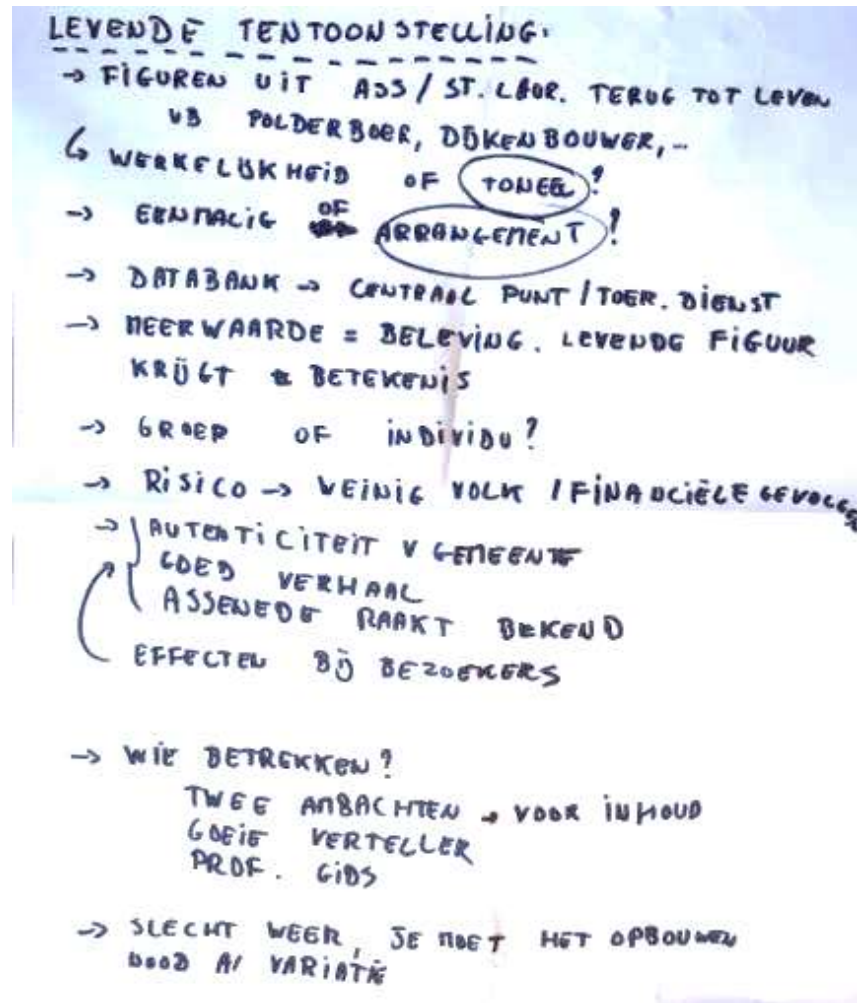 LEVENDE TENTOONSTELLING.
→ FIGUREN UIT ASS / ST. LAUR. TERUG TOT LEVEN
VB POLDERBOER, DIJKENBOUWER, ..
↳ WERKELIJKHEID OF TONEEL?
→ EENMALIG OF ARRANGEMENT?
→ DATABANK → CENTRAAL PUNT / TOER. DIENST
→ MEERWAARDE = BELEVING. LEVENDE FIGUUR
KRIJGT BETEKENIS
→ GROEP OF INDIVIDU?
→ RISICO → WEINIG VOLK / FINANCIËLE GEVOLGEN
→ AUTENTICITEIT V GEMEENTE
GOED VERHAAL
ASSENEDE RAAKT BEKEND
EFFECTEN BIJ BEZOEKERS
→ WIE BETREKKEN?
TWEE AMBACHTEN → VOOR INHOUD
GOEIE VERTELLER
PROF. GIDS
→ SLECHT WEER, JE MOET HET OPBOUWEN
VARIATIE